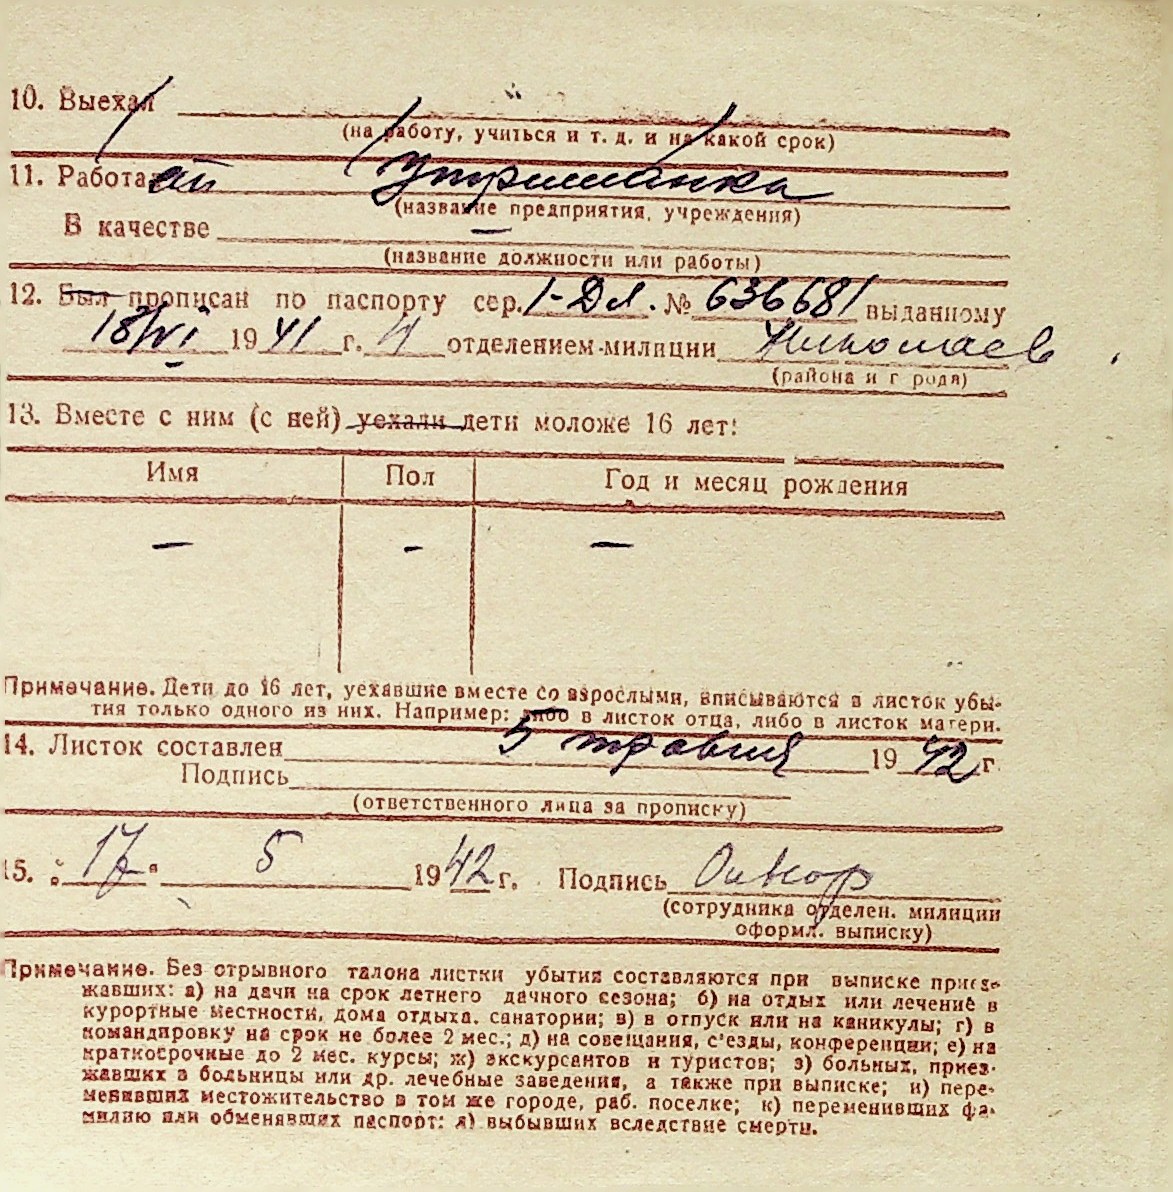 10. Выехал
(на работу, учиться и т. д. и на какой срок)
11. Работает Утриманка
(название предприятия, учреждения)
В качестве —
(название должности или работы)
12. Был прописан по паспорту сер. 1-ДЛ. № 636681 выданному
18/VI 1941 г. 4 отделением милиции Николаев
(района и г рода)
13. Вместе с ним (с ней) уехали дети моложе 16 лет:
Имя Пол Год и месяц рождения
— - —
Примечание. Дети до 16 лет, уехавшие вместе со взрослыми, вписываются в листок убы-
тия только одного из них. Например: либо в листок отца, либо в листок матери.
14. Листок составлен 5 травня 1942 г.
Подпись
(ответственного лица за прописку)
15. „ 17 " 5 1942 г. Подпись
(сотрудника отделен. милиции
оформл. выписку)
Примечание. Без отрывного талона листки убытия составляются при выписке приез-
жавших: а) на дачи на срок летнего дачного сезона; б) на отдых или лечение в
курортные местности, дома отдыха, санатории; в) в отпуск или на каникулы; г) в
командировку на срок не более 2 мес.; д) на совещания, с'езды, конференции; е) на
краткосрочные до 2 мес. курсы; ж) экскурсантов и туристов; з) больных, приез-
жавших в больницы или др. лечебные заведения, а также при выписке; и) пере-
менивших местожительство в том же городе, раб. поселке; к) переменивших фа-
милию или обменявших паспорт: л) выбывших вследствие смерти.